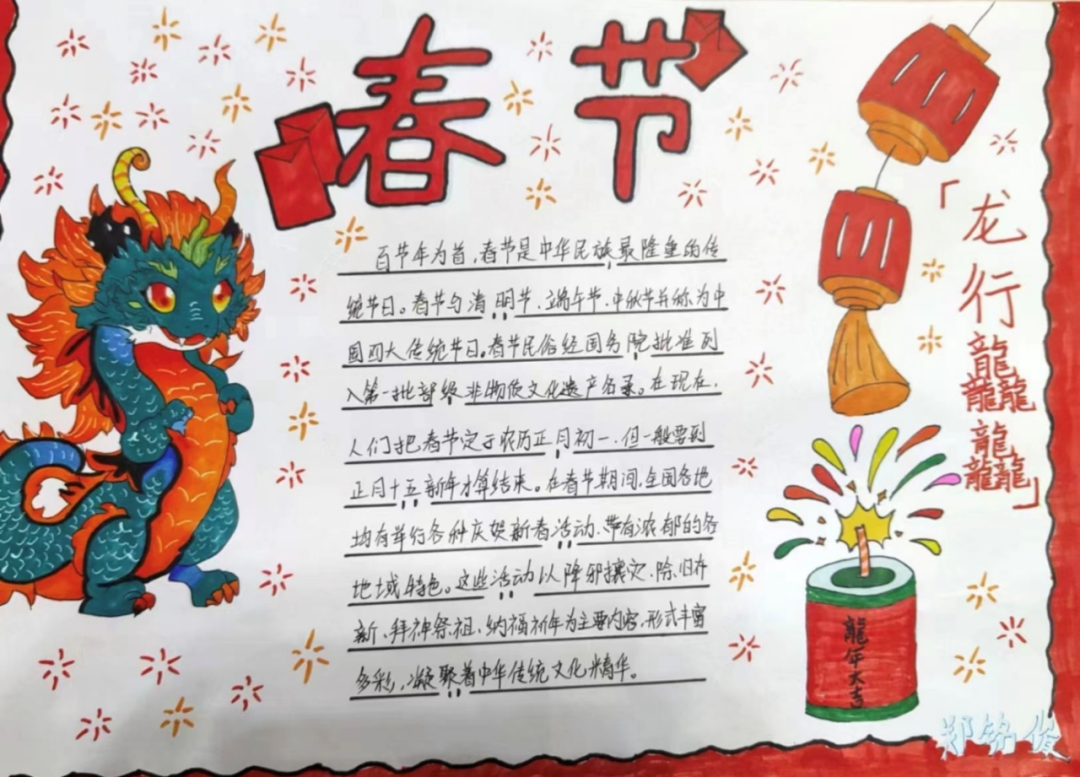 春节
百节年为首,春节是中华民族最隆重的传
统节日。春节与清明节、端午节、中秋节并称为中
国四大传统节日。春节民俗经国务院批准列
入第一批部级非物质文化遗产名录。在现在,
人们把春节定于农历正月初一,但一般要到
正月十五新年才算结束。在春节期间,全国各地
均有举行各种庆贺新春活动,带有浓郁的各
地域特色。这些活动以降邪攘灾、除旧布
新、拜神祭祖、纳福祈年为主要内容,形式丰富
多彩,凝聚着中华传统文化精华。
「龙行龘龘」
龍年大吉
郑铭俊